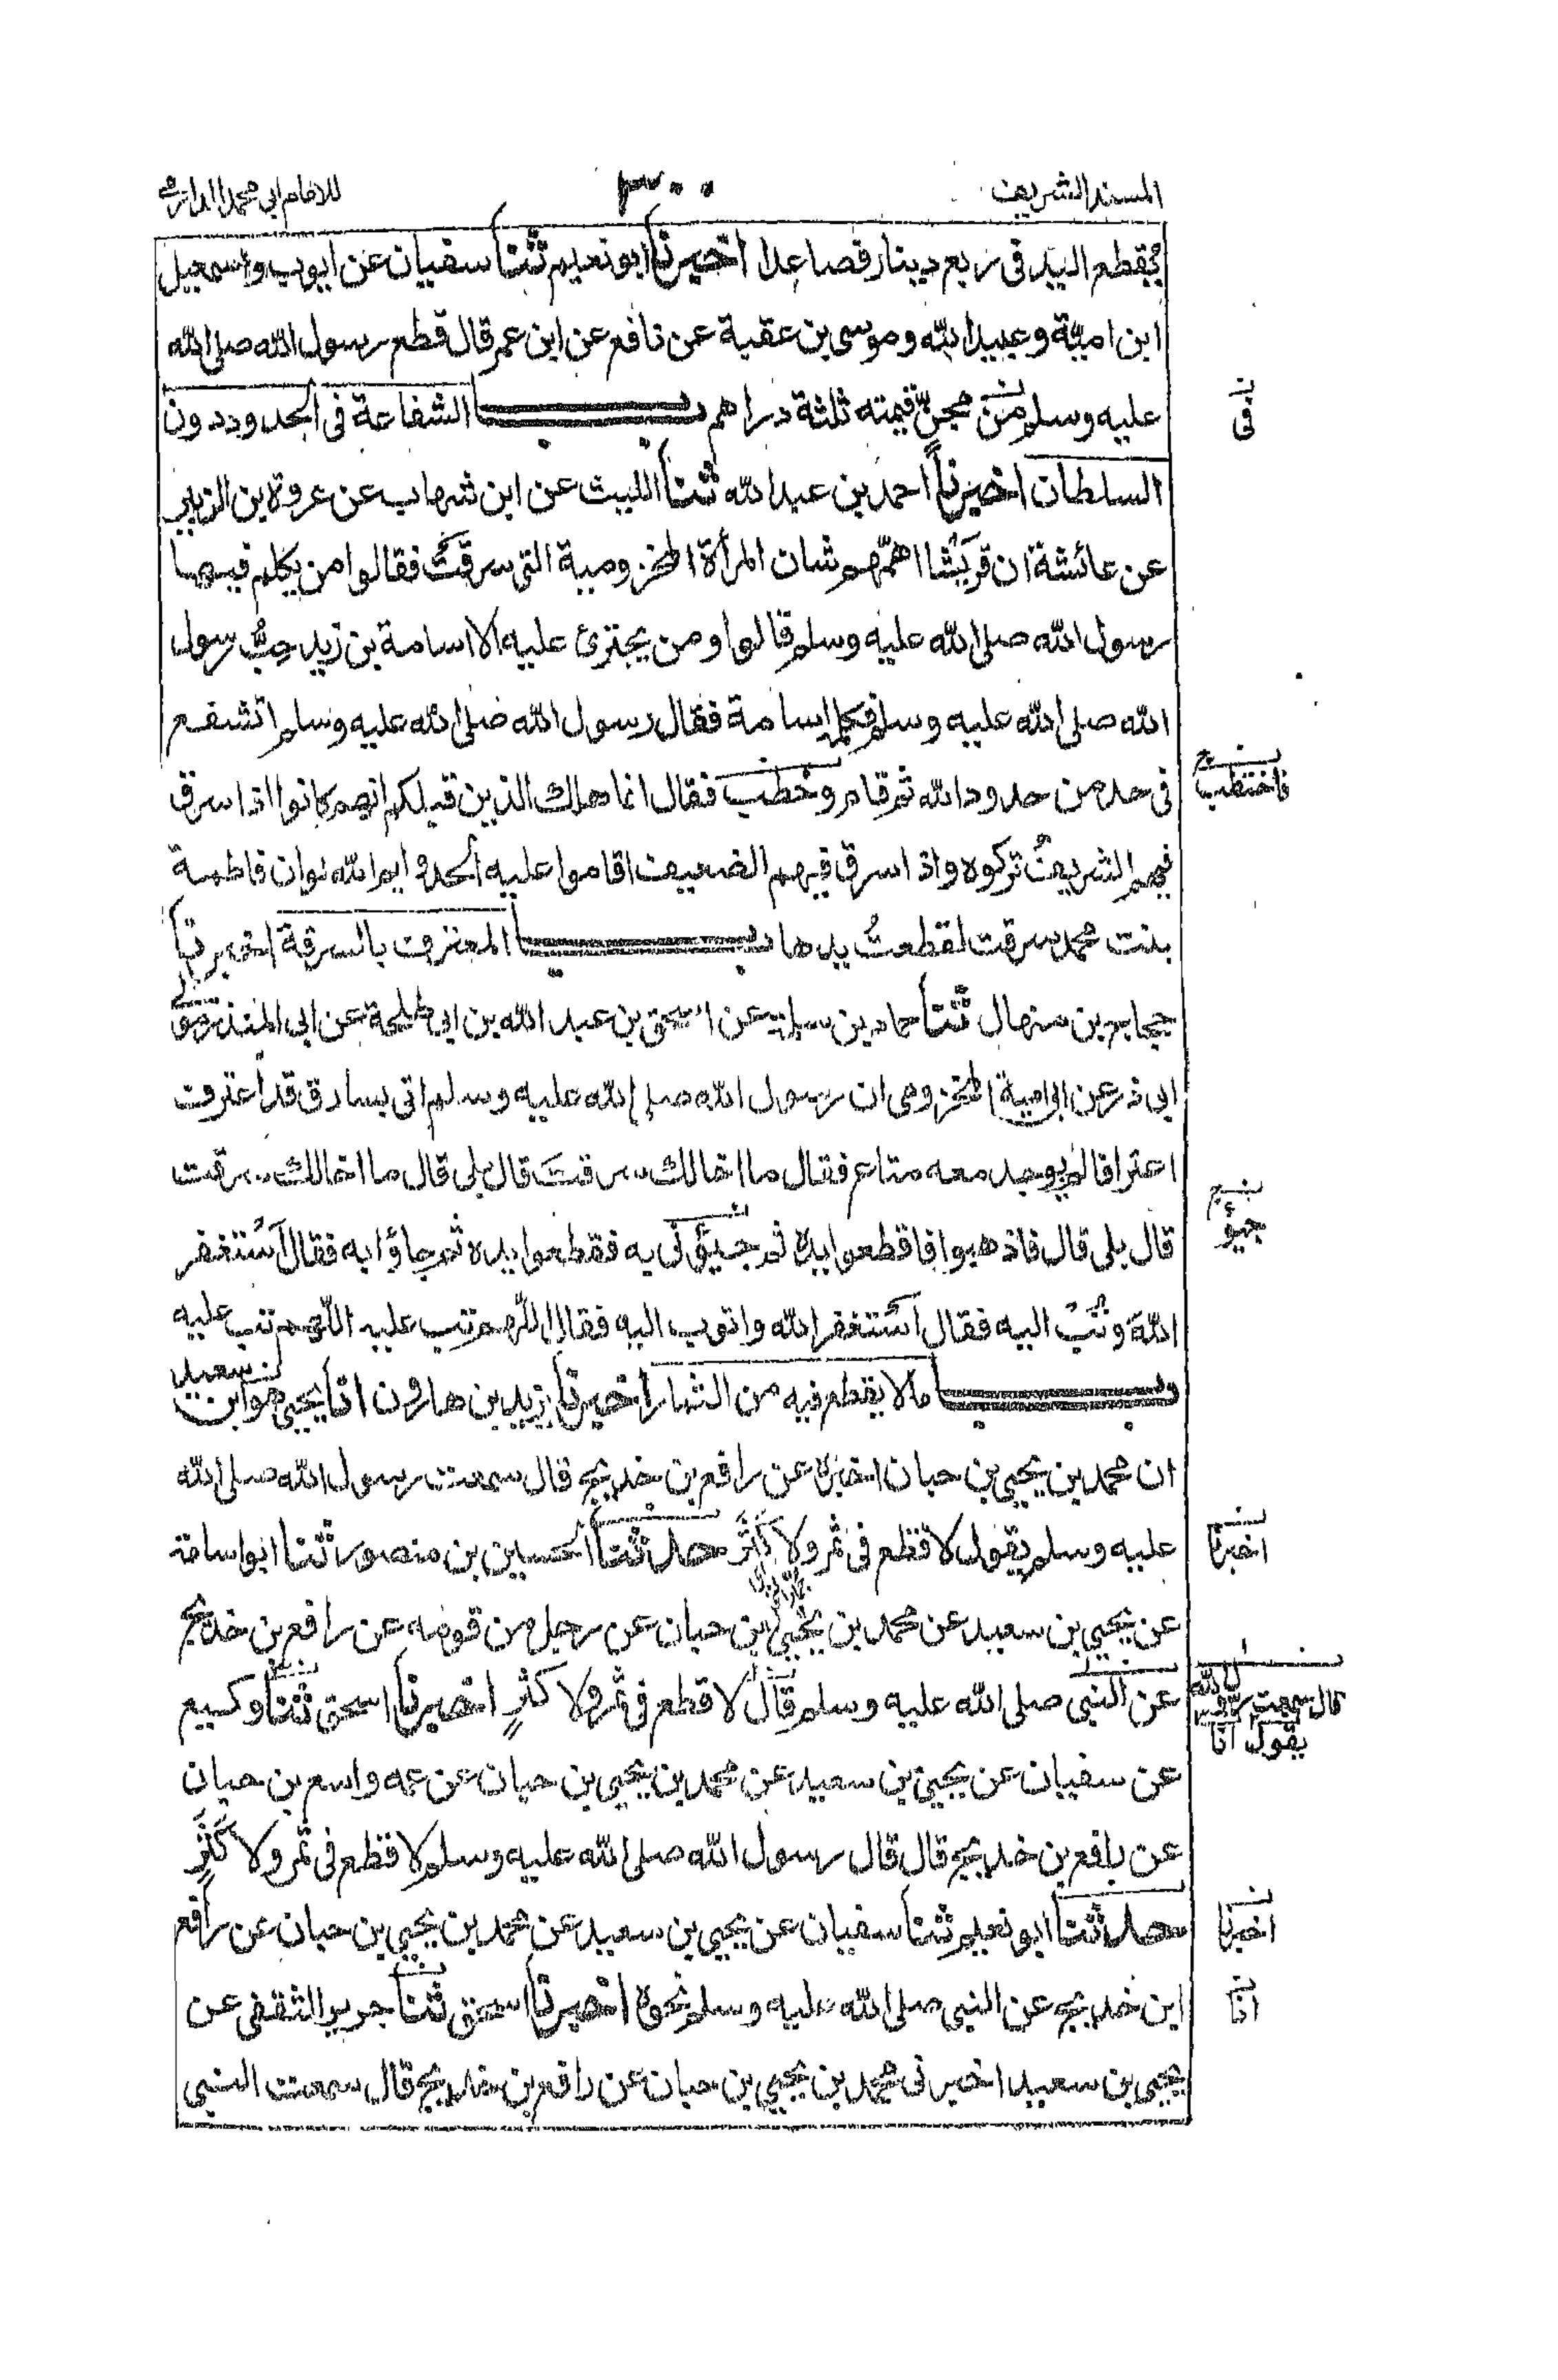 المسند الشريف
٣٠٠
للامام ابى محمد الدارمى
تقطع اليد فى ربع دينار فصاعدا اخبرنا ابو نعيم ثنا سفيان عن ايوب واسمعيل
ابن امية وعبيد الله وموسى بن عقبة عن نافع عن ابن عمر قال قطع رسول الله صلى الله
عليه وسلم من مجنّ قيمته ثلثة دراهم باب الشفاعة فى الحدود دون
فى
السلطان اخبرنا احمد بن عبد الله ثنا الليث عن ابن شهاب عن عروة بن الزبير
عن عائشة ان قريشا اهمّهم شان المرأة المخزومية التى سرقت فقالوا من يكلم فيها
رسول الله صلى الله عليه وسلم قالوا ومن يجترئ عليه الا اسامة بن زيد حِبُّ رسول
الله صلى الله عليه وسلم فكلمه اسامة فقال رسول الله صلى الله عليه وسلم اتشفع
فى حد من حدود الله ثم قام وخطب فقال انما هلك الذين قبلكم انهم كانوا اذا سرق
فاختطب
فيهم الشريفُ تركوه واذا سرق فيهم الضعيف اقاموا عليه الحد وايم الله لو ان فاطمة
بنت محمد سرقت لقطعتُ يدها باب المعترف بالسرقة اخبرنا
حجاج بن منهال ثنا حماد بن سلمة عن اسحق بن عبد الله بن ابى طلحة عن ابى المنذر مولى
ابى ذر عن ابى امية المخزومى ان رسول الله صلى الله عليه وسلم اتى بسارق قد اعترف
اعترافا لم يوجد معه متاع فقال ما اخالك سرقتَ قال بلى قال ما اخالك سرقت
قال بلى قال فاذهبوا فاقطعوا يده ثم جيئونى به فقطعوا يده ثم جاؤا به فقال اَسْتغفر
جيؤ
اللهَ وتُبْ اليه فقال اَسْتغفر الله واتوب اليه فقال اللّهم تب عليه اللّهم تب عليه
باب ما لا يقطع فيه من الثمار اخبرنا يزيد بن هارون انا يحيى هو ابن
سعيد
ان محمد بن يحيى بن حبان اخبره عن رافع بن خديج قال سمعت رسول الله صلى الله
عليه وسلم يقول لا قطع فى ثمر ولا كَثَرٍ حدثنا الحسين بن منصور ثنا ابو اسامة
اخبرنا
عن يحيى بن سعيد عن محمد بن يحيى بن حبان عن رجل من قومه عن رافع بن خديج
عن النبى صلى الله عليه وسلم قال لا قطع فى ثمر ولا كثرٍ اخبرنا اسحق ثنا وكيع
قال سمعت رسول الله
يقول انا
عن سفيان عن يحيى بن سعيد عن محمد بن يحيى بن حبان عن عمه واسع بن حبان
عن رافع بن خديج قال قال رسول الله صلى الله عليه وسلم لا قطع فى ثمر ولا كَثَرٍ
حدثنا ابو نعيم ثنا سفيان عن يحيى بن سعيد عن محمد بن يحيى بن حبان عن رافع
اخبرنا
ابن خديج عن النبى صلى الله عليه وسلم نحوه اخبرنا اسحق ثنا جرير والثقفى عن
انا
يحيى بن سعيد اخبرنى محمد بن يحيى بن حبان عن رافع بن خديج قال سمعت النبى